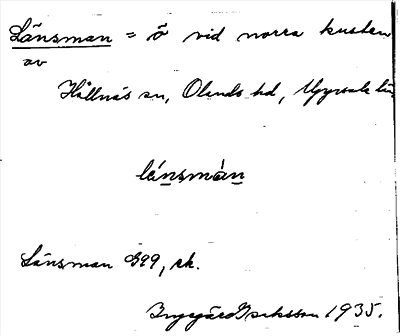 Länsman = ö vid norra kusten
av
Hållnäs sn, Olands hd, Uppsala län
länsmàn
Länsman G99, sk.
Ingegärd Isaksson 1935.